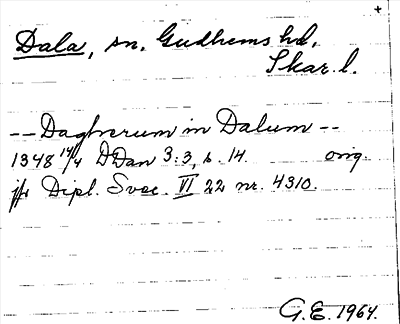 +
Dala, sn, Gudhems hd,
Skar. l.
-- Daghrerum in Dalum --
1348 14/4 DDan 3:3, s. 14. orig.
jfr Dipl. Svec. VI 22 nr. 4310.
G.E. 1964.